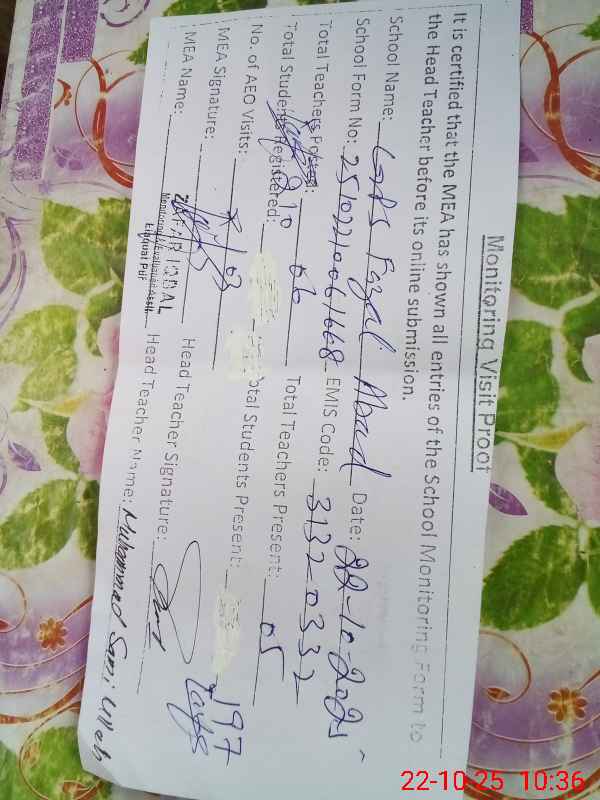 Monitoring Visit Proof
It is certified that the MEA has shown all entries of the School Monitoring Form to
the Head Teacher before its online submission.
School Name: GPS Fazal Abad Date: 22-10-2025
School Form No: 251022100061668 EMIS Code: 31320332
Total Teachers Posted: 06 Total Teachers Present: 05
Total Students Registered: 210 Total Students Present: 197
No. of AEO Visits: 03
MEA Signature: Head Teacher Signature:
MEA Name: ZAFAR IQBAL Head Teacher Name: Muhammad Sami Ullah
22-10-25 10:36